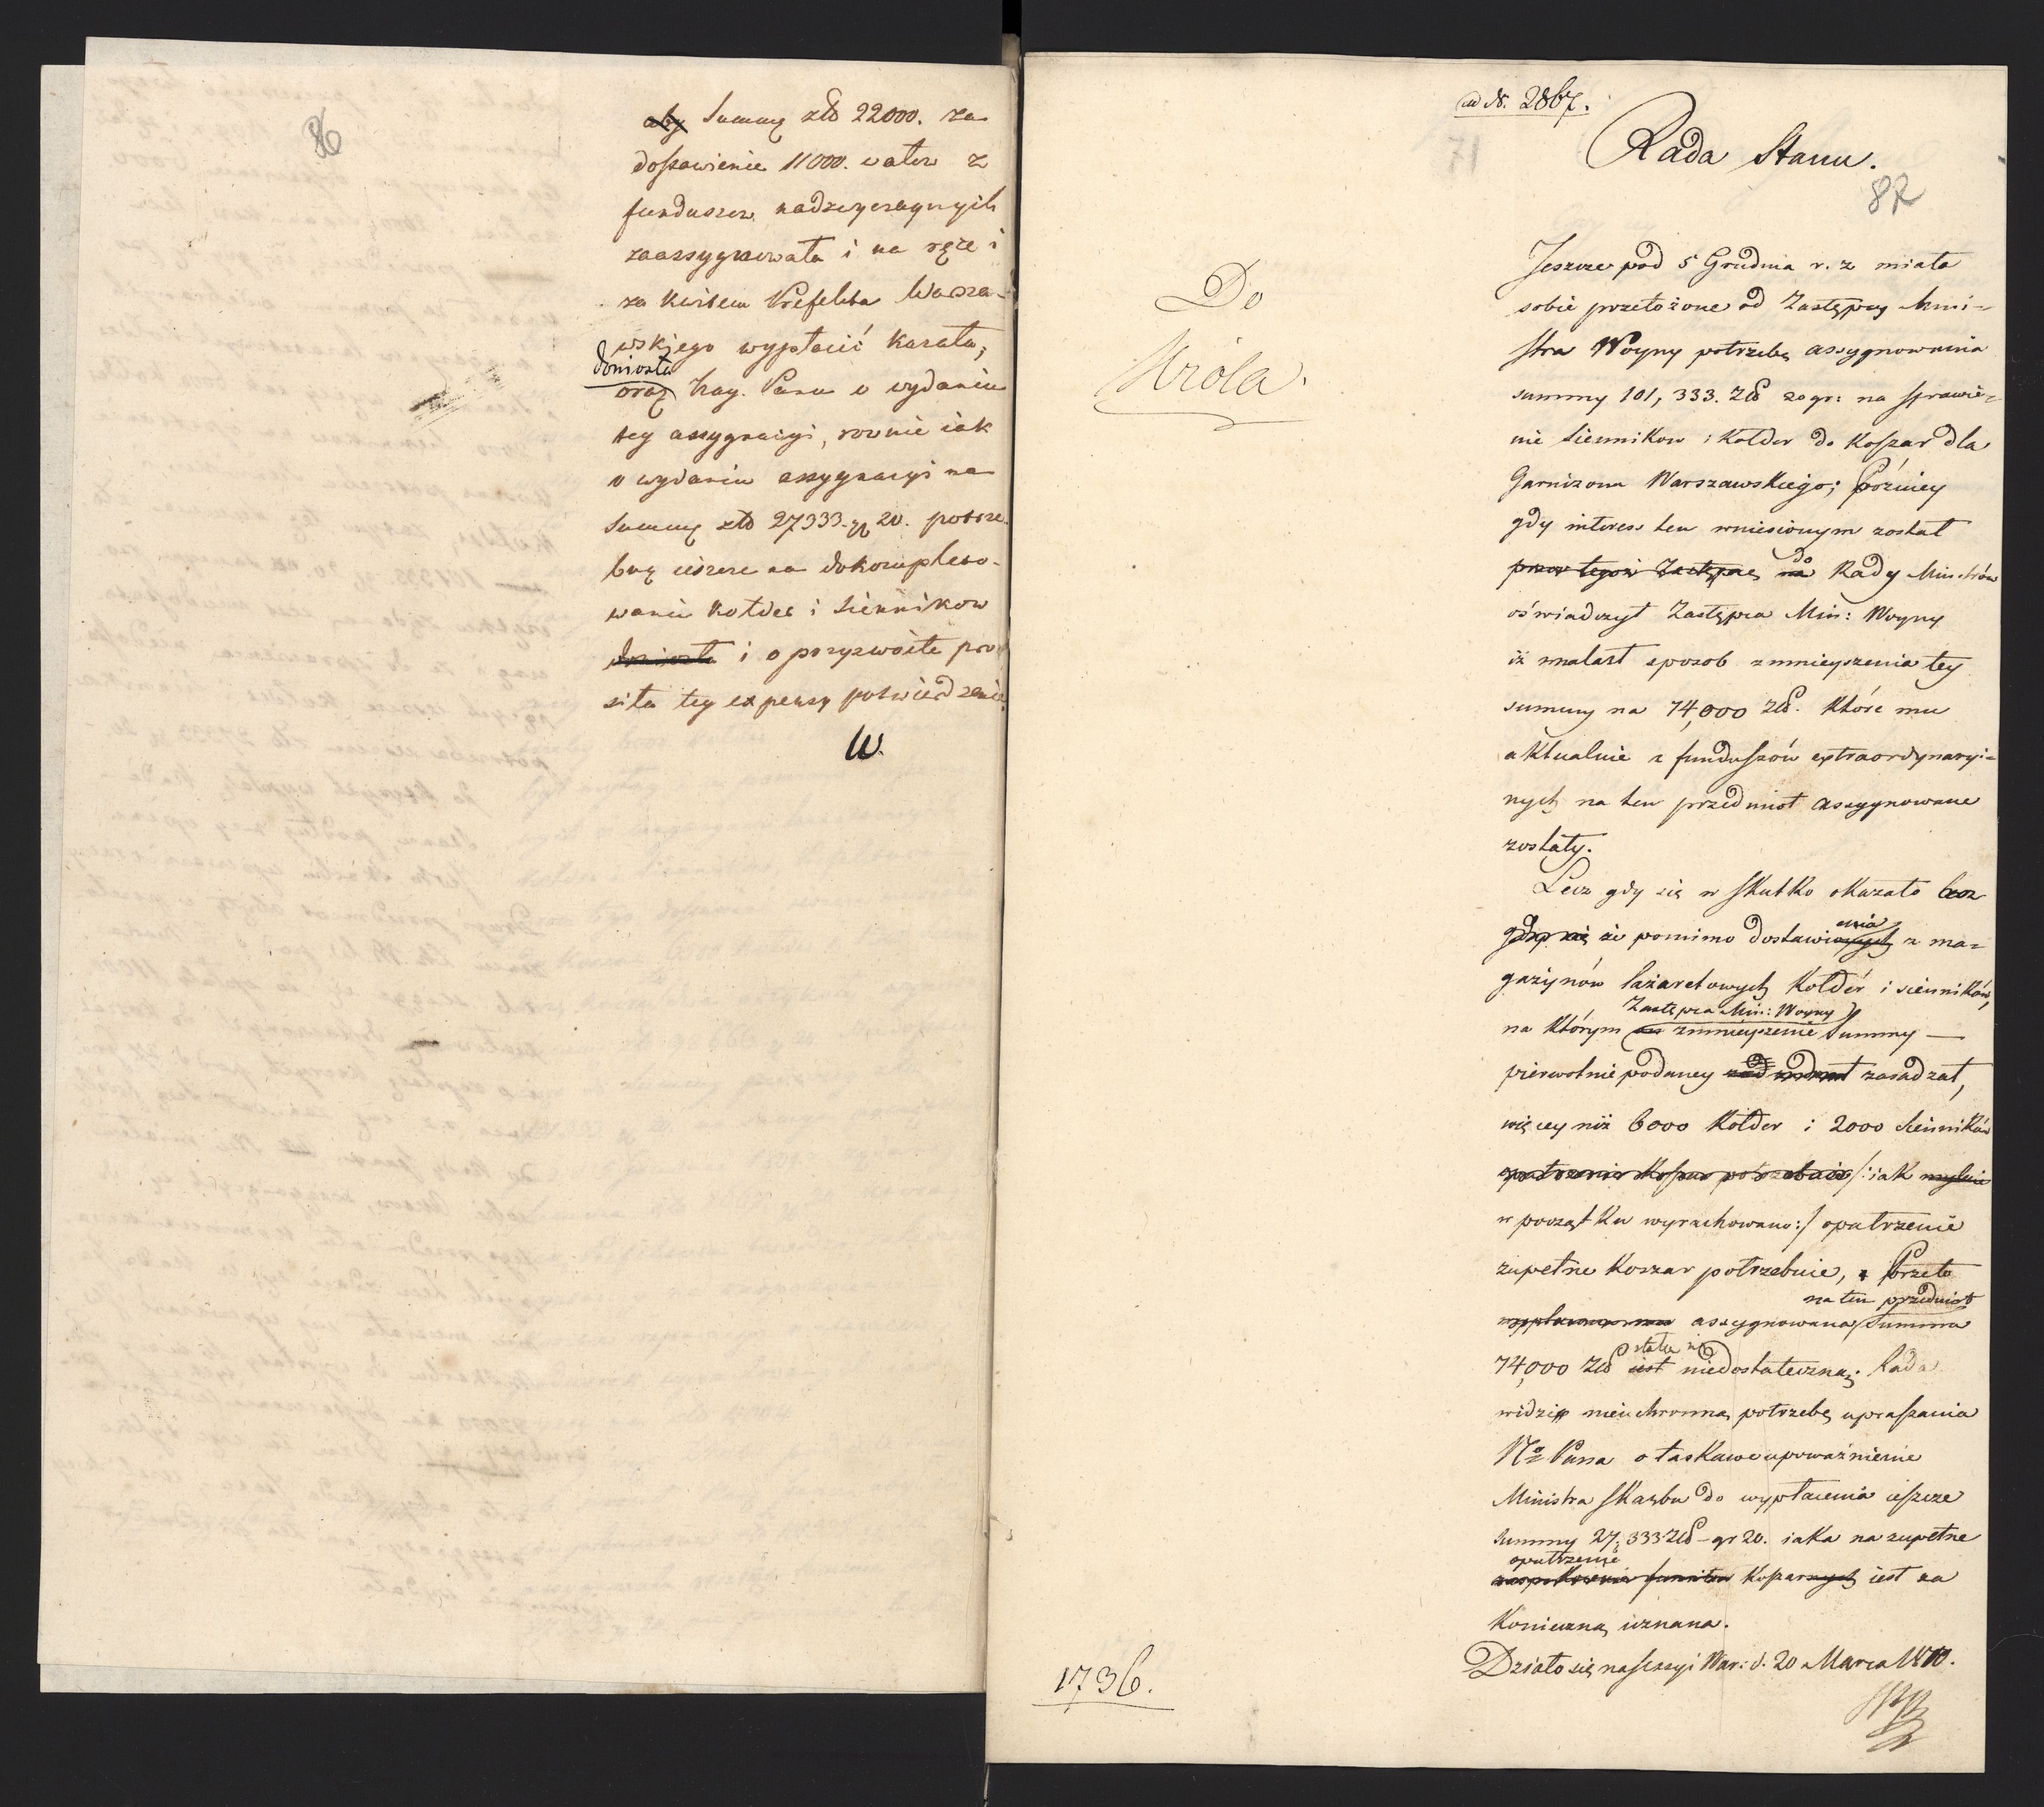 86
aby Summę złt 22000. za
dostawienie 11000. watow z
funduszow nadzwyczaynych
zaassygnowała i na ręce i
za kwitem Prefekta Warsza-
wskiego wypłacić kazała,
doniosła
oraz Nay. Panu o wydaniu
tey assygnacyi, rownie iak
o wydaniu assygnacyi na
Summę złt 27333. gr 20. potrze-
bną ieszcze na dokompleto-
wanie kołder i Siennikow
doniosła i o przyzwoite pro-
siła tey expensy potwierdzenie.
W.
ad N. 2867.
71
Rada Stanu.
87
Do
Króla.
Jeszcze pod 5 Grudnia r. z miała
sobie przełożone od Zastępcy Mini-
stra Woyny potrzebę assygnowania
summy 101,333. Zł 20 gr: na sprawie-
nie Siennikow i Kołder do Koszar dla
Garnizonu Warszawskiego; Późniey
gdy interess ten wniesionym został
przez tegoż Zastępcę na do Rady Ministrów
oświadczył Zastępca Min: Woyny
iż znalazł sposob zmnieyszenia tey
summy na 74,000 Zł. które mu
aktualnie z funduszów extraordynaryi-
nych na ten przedmiot assygnowane
zostały.
Lecz gdy się w skutko okazało
że pomimo dostawienia z ma-
gazynów lazaretowych Kołder i sienników,
Zastępca Min: Woyny
na którym zmnieyszenie Summy —
pierwotnie podaney zasadzał,
więcey niż 6000 Kołder i 2000 Sienników
opatrzenia Koszar potrzebnie /: iak mylnie
w początku wyrachowano :/ opatrzenie
zupełne Koszar potrzebuie, Przeto
na ten przedmiot
assygnowana Summa
stała się
74,000 Zł iest niedostateczną; Rada
widzi nieuchronną potrzebę upraszania
N° Pana o łaskawe upoważnienie
Ministra Skarbu do wypłacenia ieszcze
summy 27,333 Zł - gr 20. iaka na zupełne
opatrzenie
Koszarnych iest za
Konieczną uznana.
Działo się na sessyi War: d. 20 Marca 1810.
1736.